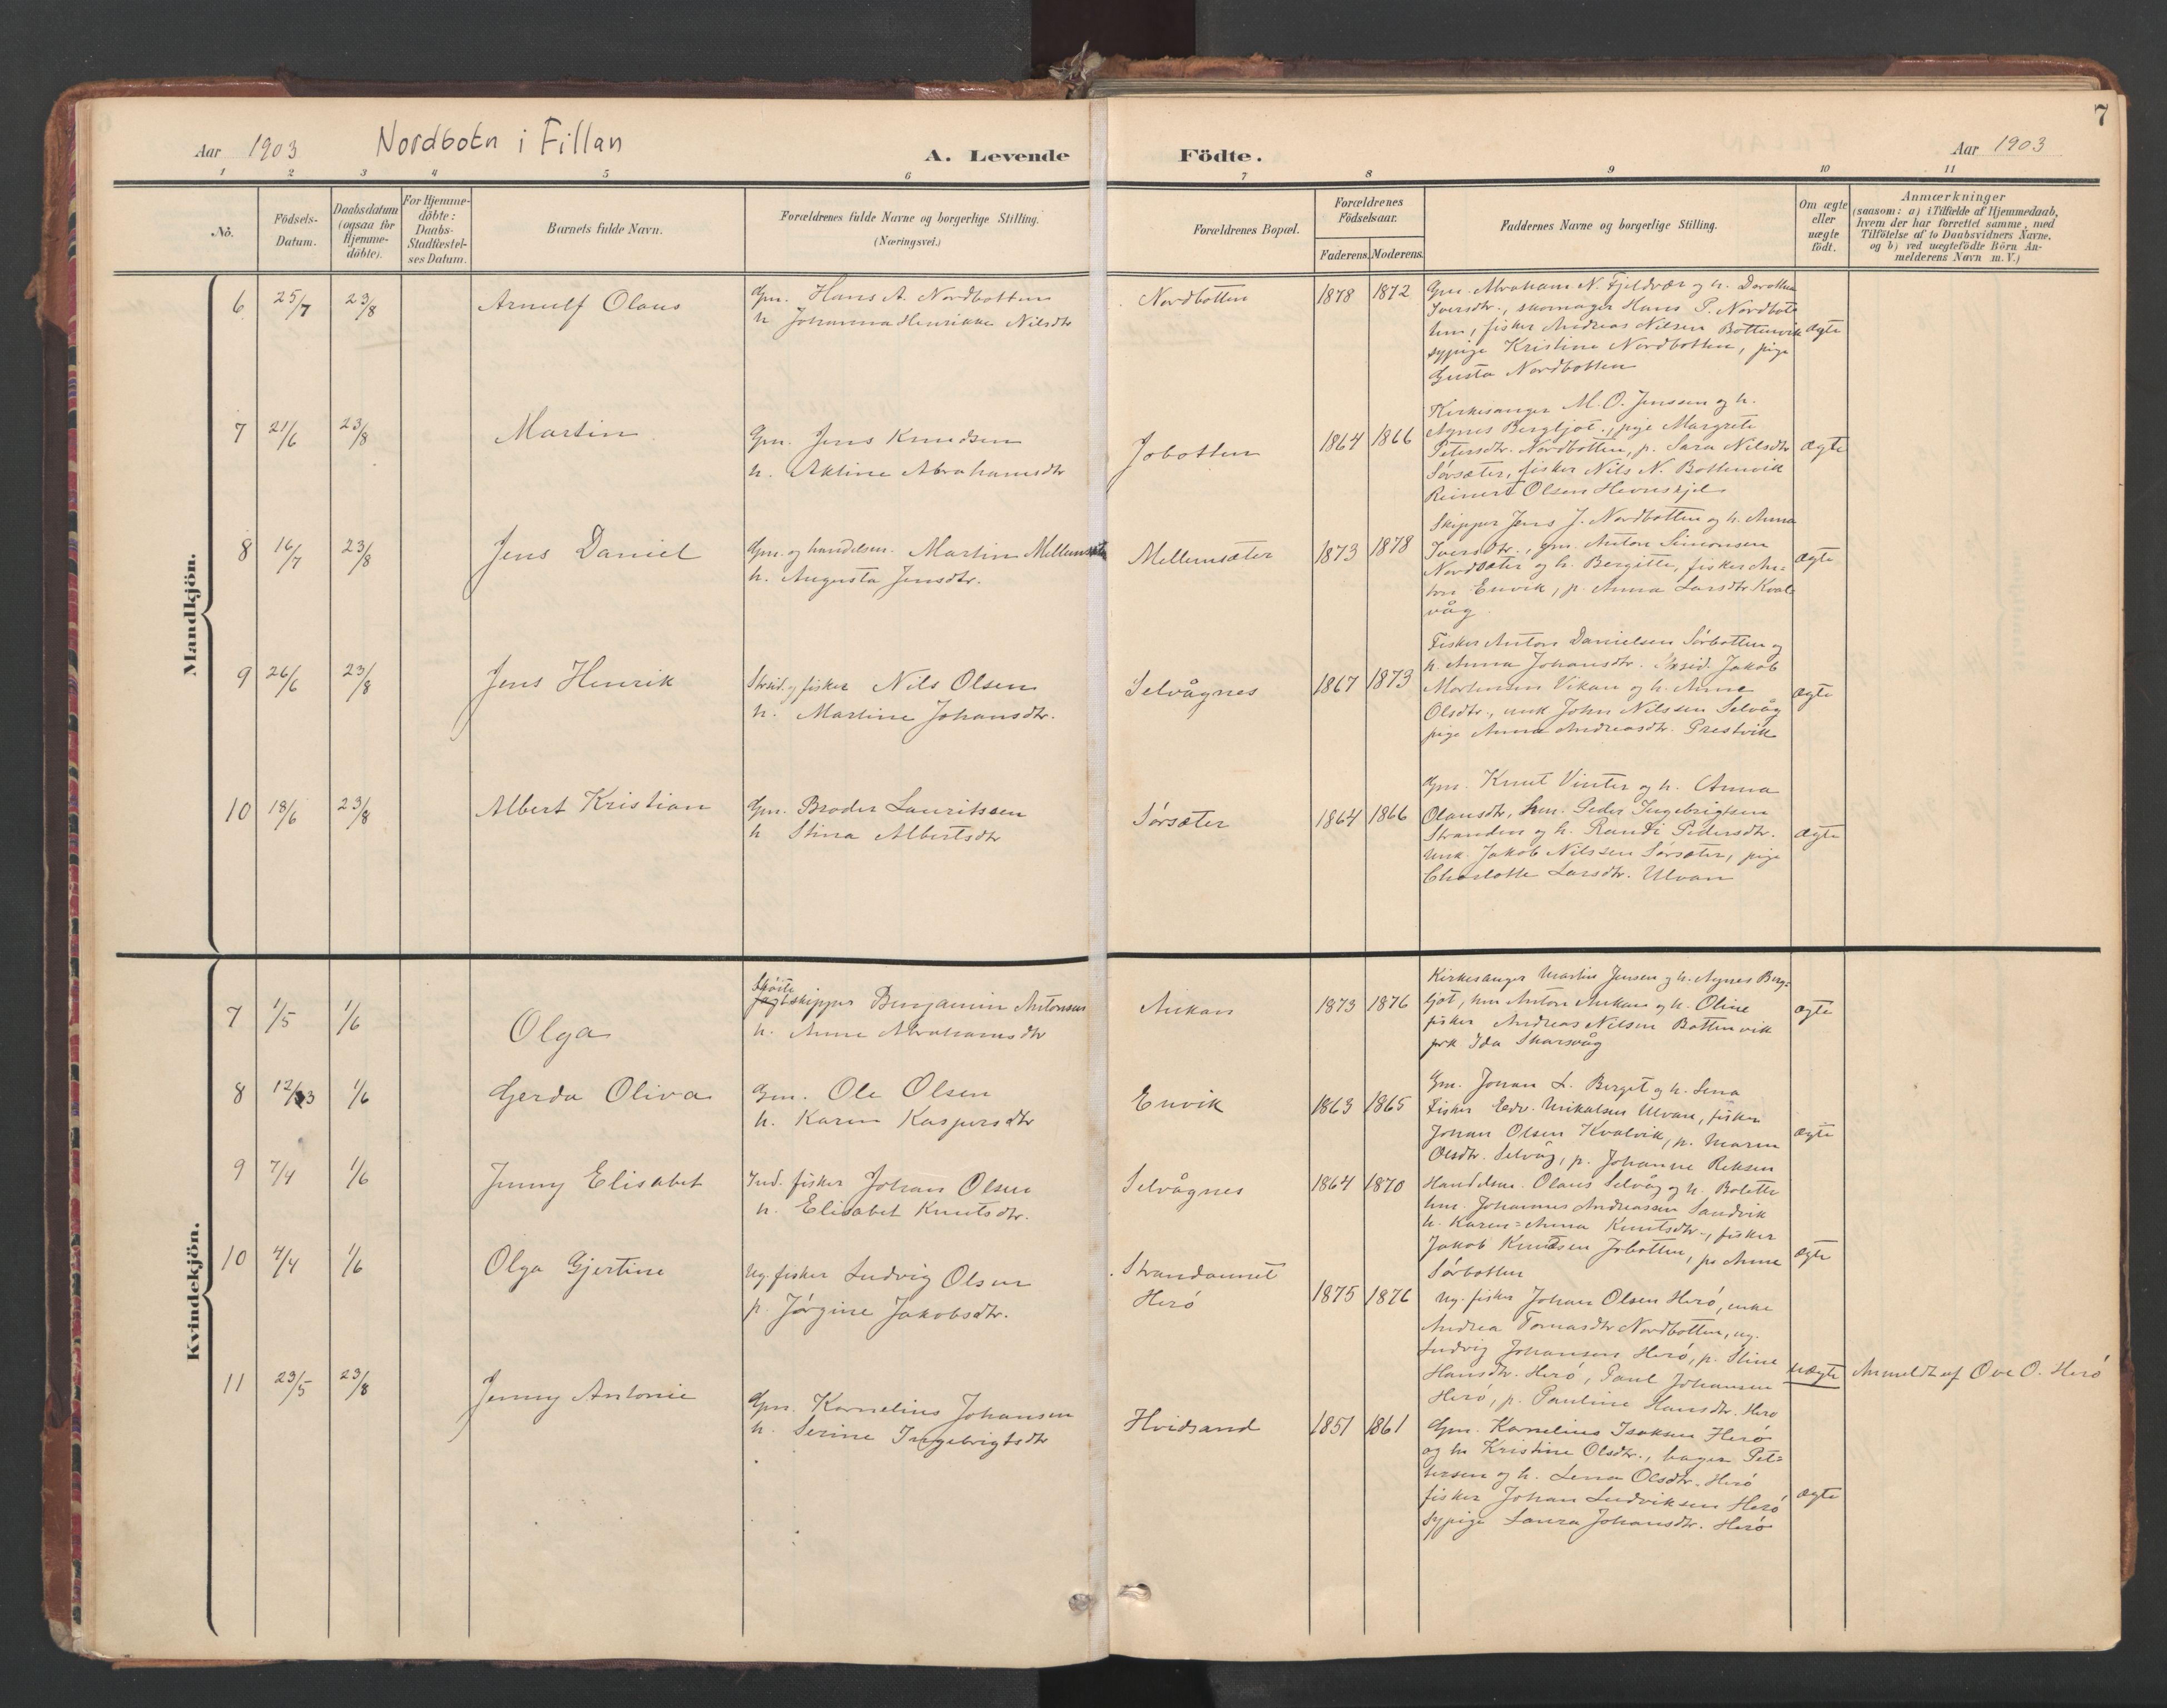 7
Aar 1903 Nordbotn i Fillan A. Levende Födte. Aar 1903
1 2 3 4 5 6 7 8 9 10 11
Nö.
Födsels-
Datum.
Daabsdatum
(ogsaa for
Hjemme-
döbte).
For Hjemme-
döbte:
Daabs-
Stadfæstel-
ses Datum.
Barnets fulde Navn.
Forældrenes fulde Navne og borgerlige Stilling.
(Næringsvei.)
Forældrenes Bopæl.
Forældrenes
Födselsaar.
Faderens. Moderens.
Faddernes Navne og borgerlige Stilling.
Om ægte
eller
uægte
födt.
Anmærkninger
(saasom: a) i Tilfælde af Hjemmedaab,
hvem der har forrettet samme, med
Tilföielse af to Daabsvidners Navne,
og b) ved uægtefödte Börn An-
melderens Navn m. V.)
Mandkjön.
6 25/7 23/8 Arnulf Olaus
Gm. Hans A. Nordbotten
h. Johanna Henrikke Nilsdtr
Nordbotten 1878 1872
Gm. Abraham N. Fjeldvær og h. Dorothea
Iversdtr., skomager Hans P. Nordbot
ten, fisker Andreas Nilsen Bottenvik
sypige Kristine Nordbotten, pige
Gusta Nordbotten
ægte
7 21/6 23/8 Martin
Gm. Jens Knudsen
h. Aktine Abrahamsdtr
Jobotten 1864 1866
Kirkesanger M. O. Jenssen og h.
Agnes Bergljot., pige Margrete
Petersdtr. Nordbotten, p. Sara Nilsdtr
Sørsæter, fisker Nils N. Bottenvik
Reinert Olsen Hevnskjel
ægte
8 16/7 23/8 Jens Daniel
Gm. og handelsm. Martin Mellemsæter
h. Augusta Jensdtr.
Mellemsæter 1873 1878
Skipper Jens J. Nordbotten og h. Anna
Iversdtr., gm. Anton Simonsen
Nordsæter og h. Bergitte, fisker An=
ton Envik, p. Anna Larsdtr Kval
våg.
ægte
9 26/6 23/8 Jens Henrik
Strsid. og fisker Nils Olsen
h. Martine Johansdtr.
Selvågnes 1867 1873
Fisker Anton Danielsen Sørbotten og
h. Anna Johansdtr. Jakob
Mortensen Vikan og h. Anne
Olsdtr., unk John Nilssen Selvåg
pige Anna Andreasdtr. Prestvik
ægte
10 18/6 23/8 Albert Kristian
Gm. Broder Lauritssen
h Stina Albertsdtr
Sørsæter 1864 1866
Gm. Knut Vinter og h. Anna
Olausdtr, hm. Peder Ingebrigtsen
Stranden og h. Randi Pedersdtr.
unk. Jakob Nilssen Sørsæter, pige
Charlotte Larsdtr. Ulvan
ægte
Kvindekjön.
7 1/5 1/6 Olga
Skøite
Jagtskipper Benjamin Antonsen
h. Anne Abrahamsdtr
Aukan 1873 1876
Kirkesanger Martin Jensen og h. Agnes Berg=
ljot, hm Anton Aukan og h. Oline
fisker Andreas Nilsen Bottenvik
Ida Skarsvåg
ægte
8 12/3 1/6 Gerda Oliva
Gm. Ole Olsen
h. Karen Kaspersdtr
Envik 1863 1865
Gm. Johan L. Berget og h. Lena
Fisker Edv. Mikalsen Ulvan, fisker
Johan Olsen Kvalvik, p. Maren
Olsdtr. Selvåg, p. Johanne Reksen
ægte
9 7/4 1/6 Jenny Elisabet
Ind. fisker Johan Olsen
h. Elisabet Knutsdtr.
Selvågnes 1864 1870
Handelsm. Olaus Selvåg og h. Bolette
hm. Johannes Andreassen Sandvik
h. Karen=Anna Knutsdtr., fisker
Jakob Knudsen Jobotten, p. Anne
Sørbotten
ægte
10 4/4 1/6 Olga Gjertine
Ug. fisker Ludvig Olsen
p. Jørgine Jakobsdtr.
Strandaunet
Herø
1875 1876
Ug. fisker Johan Olsen Herø, enke
Andrea Tomasdtr Nordbotten, ug.
Ludvig Johansen Herø, p. Stine
Hansdtr. Herø, Paul Johansen
Herø, p. Pauline Hansdtr. Herø
uægte Anmeldt af Ove O. Herø
11 23/5 23/8 Jenny Antonie
Gm. Kornelius Johansen
h. Serine Ingebrigtsdtr
Hvidsand 1851 1861
Gm. Kornelius Isaksen Herø
og h. Kristine Olsdtr., bager Pet=
tersen og h. Lena Olsdtr. Herø
fisker Johan Ludviksen Herø
sypige Laura Johansdtr. Herø
ægte